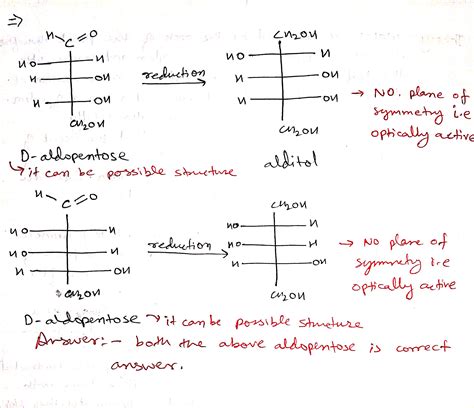 ⇒
H C=O CH2OH
HO H HO H
H OH reduction H OH
H OH H OH → NO. plane of
symmetry i.e
CH2OH CH2OH optically active
D-aldopentose alditol
↳ it can be possible structure
H C=O CH2OH
HO H HO H
HO H reduction HO H → NO plane of
H OH H OH symmetry i.e
CH2OH CH2OH optically active
D-aldopentose → it can be possible structure
Answer:- both the above aldopentose is correct
answer.